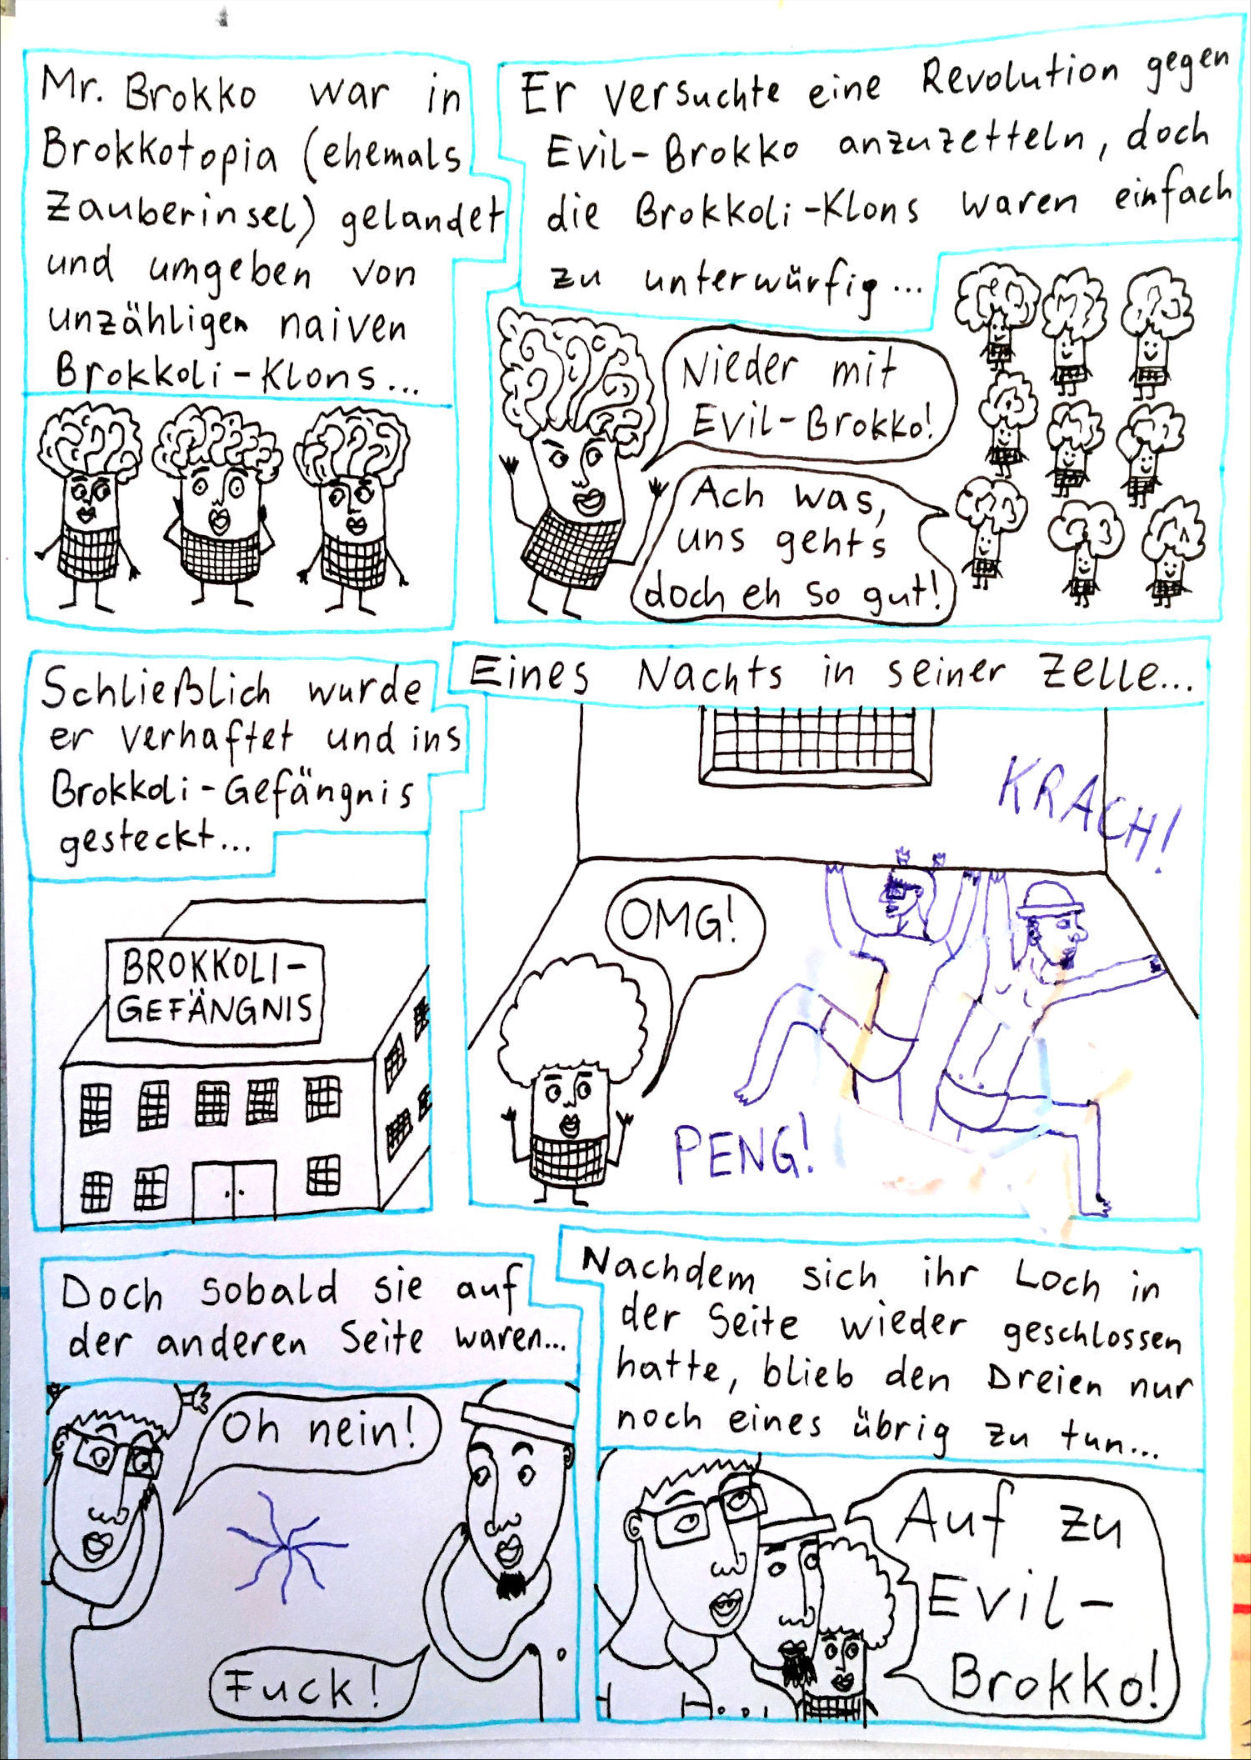 Mr. Brokko war in
Brokkotopia (ehemals
Zauberinsel) gelandet
und umgeben von
unzähligen naiven
Brokkoli-Klons...
Er versuchte eine Revolution gegen
Evil-Brokko anzuzetteln, doch
die Brokkoli-Klons waren einfach
zu unterwürfig...
Nieder mit
Evil-Brokko!
Ach was,
uns geht's
doch eh so gut!
Schließlich wurde
er verhaftet und ins
Brokkoli-Gefängnis
gesteckt...
BROKKOLI-
GEFÄNGNIS
Eines Nachts in seiner Zelle...
KRACH!
OMG!
PENG!
Doch sobald sie auf
der anderen Seite waren...
Oh nein!
Fuck!
Nachdem sich ihr Loch in
der Seite wieder geschlossen
hatte, blieb den Dreien nur
noch eines übrig zu tun...
Auf zu
Evil-
Brokko!